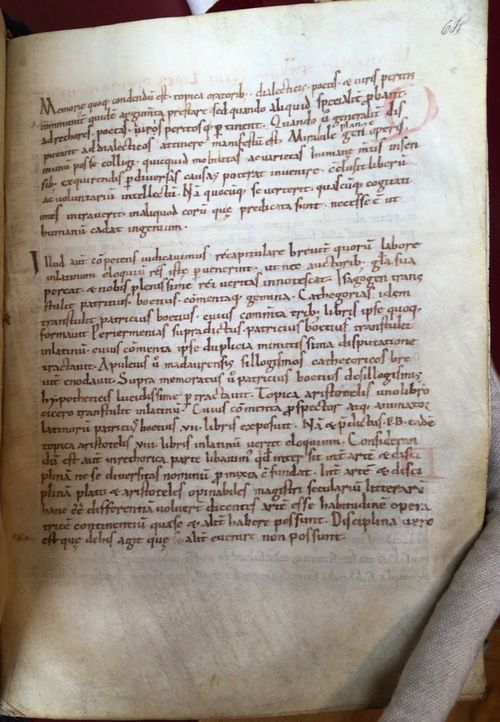 64
Memorie quoq; condendū est. topica oratorib; dialecticis. poetis. & iuris peritis
communit̄ quidē argum̄ta prestare. sed quando aliquid specialit̄ ꝓbant.
ad rethores. poetas. iurisq; peritos ꝑtinent. Quando ū generalit̄ dis
putant ad dialecticos attinere manifestū est. Mirabile plane gen' operis
inunū posse colligi. quicquid mobilitas ac varietas humane m̄tis insen
sib; exquirendis ꝑ diuersas causas poterat inuenire. c̄clusit liberū
ac voluntariū intellectū. Nā quocūq; se verterit. quascūq; cogitati
ones intrauerit. inaliquid eorū quę predicata sunt. necesse ē ut
humanū cadat ingenium.
Illud aut̄ c̄petens iudicauimus recapitulare breuit̄ quorū labore
inlatinum eloquiū res istę ꝑuenerint. ut nec auctorib; gl̄a sua
pereat & nobis plenissime rei veritas innotescat. Isagogen trans
tulit patricius. boetius. cōmentaq; gemina. Cathegorias idem
transtulit patricius boetius. cuius commta trib; libris ipse quoq;
formauit. Periermenias supradictus. patricius boetius transtulit
inlatinū. cuius cōmenta ipse duplicia minutissima disputatione
tractauit. Apuleius ū madaurensis sillogismos cathecoricos bre
uit̄ enodauit. Supra memoratus ū patricius boetius desillogismis
hypotheticis lucidissime ꝑtractauit. Topica aristotelis uno libro
cicero transtulit inlatinū. Cuius cōmenta ꝓspector atq; animator
latinorū patricius boetius. VIII. libris exposuit. Nā & p̄dictus. R.B. eadē
topica aristotelis VIII. libris inlatinū vertit eloquium. Consideran
dū est aut̄ inrethorica parte libauim' qd int̄sit int̄ artē & disci
plinā ne se diuersitas nominū ꝑmixta c̄fundat. Int̄ artē & disci
plinā plato & aristoteles opinabiles magistri seculariū litterarū
hanc ēē differentiā voluerunt dicentes artē esse habitudinē opera
tricē contincentiū quę se & alit̄ habere possunt. Disciplina uero
est quę dehis agit quę alit̄ euenire non possunt.